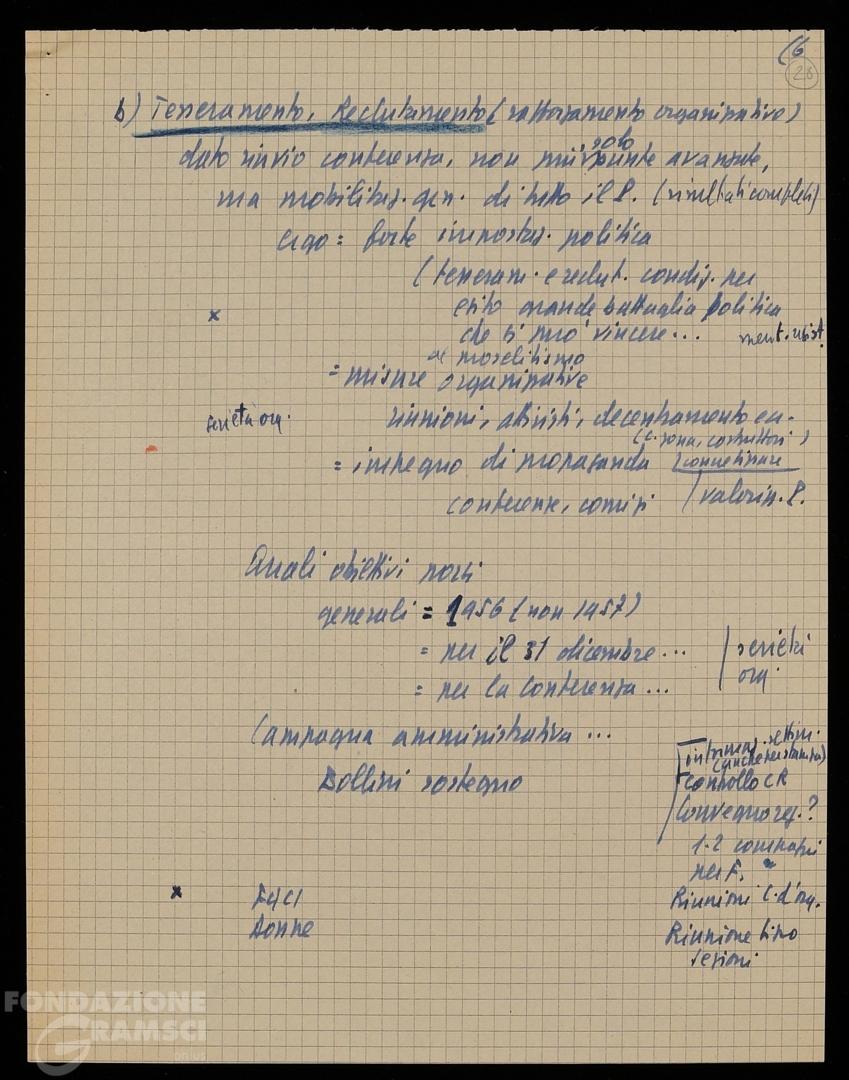 (6
26
b) Tesseramento, Reclutamento (rafforzamento organizzativo)
dato rinvio conferenza, non più solo punte avanzate,
ma mobilitaz. gen. di tutto il P. (risultati completi)
ergo = forte impostaz. politica
(tesseram. e reclut. condiz. per
esito grande battaglia politica
x
che si può vincere...
di proselitismo
= misure organizzative
serietà org.
riunioni, attivisti, decentramento ecc.
(c. zona, costruttori)
= impegno di propaganda
conferenze, comizi
valorizz. P.
Quali obiettivi porsi
generali = 1956 (non 1957)
= per il 31 dicembre...
serietà
org.
= per la Conferenza...
Campagna amministrativa...
Bollini sostegno
informaz. settim.
(anche per stampa)
Controllo CR
Convegno reg.?
1-2 compagni
per F.
x
FGCI
Riunioni C. d'org.
Donne
Riunione tipo
sezioni
FONDAZIONE
GRAMSCI
onlus